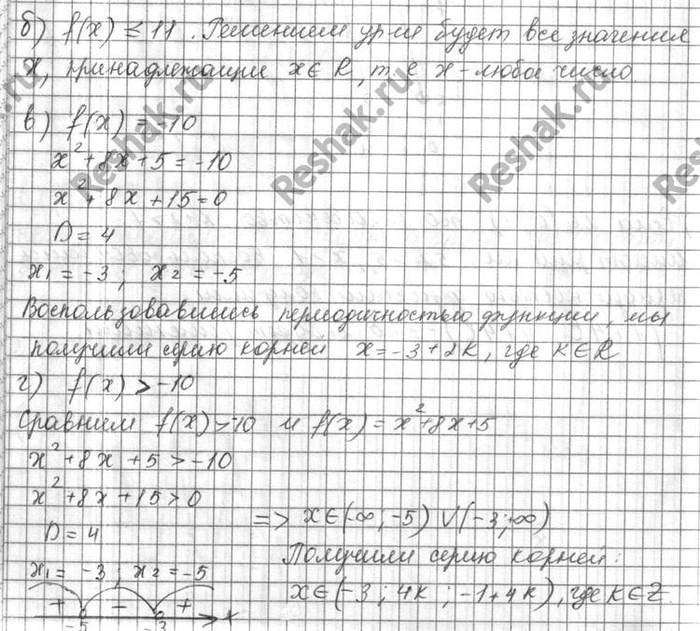 б) f(x) ≤ 11. Решением ур-ия будет все значения
x, принадлежащие x∈R, т.е x-любое число.
в) f(x) = -10
x²+8x+5=-10
x²+8x+15=0
D=4
x₁=-3; x₂=-5
Воспользовавшись периодичностью функции, мы
получили серию корней x=-3+2k, где k∈R
г) f(x) > -10
Сравним f(x)>-10 и f(x)=x²+8x+5
x²+8x+5>-10
x²+8x+15>0
D=4
x₁=-3; x₂=-5
=> x∈(-∞;-5)∪(-3;∞)
Получили серию корней:
x∈(-3;4k;-1+4k), где k∈Z.
+ - + x
-5 -3
Reshak.ru
Reshak.ru
Reshak.ru